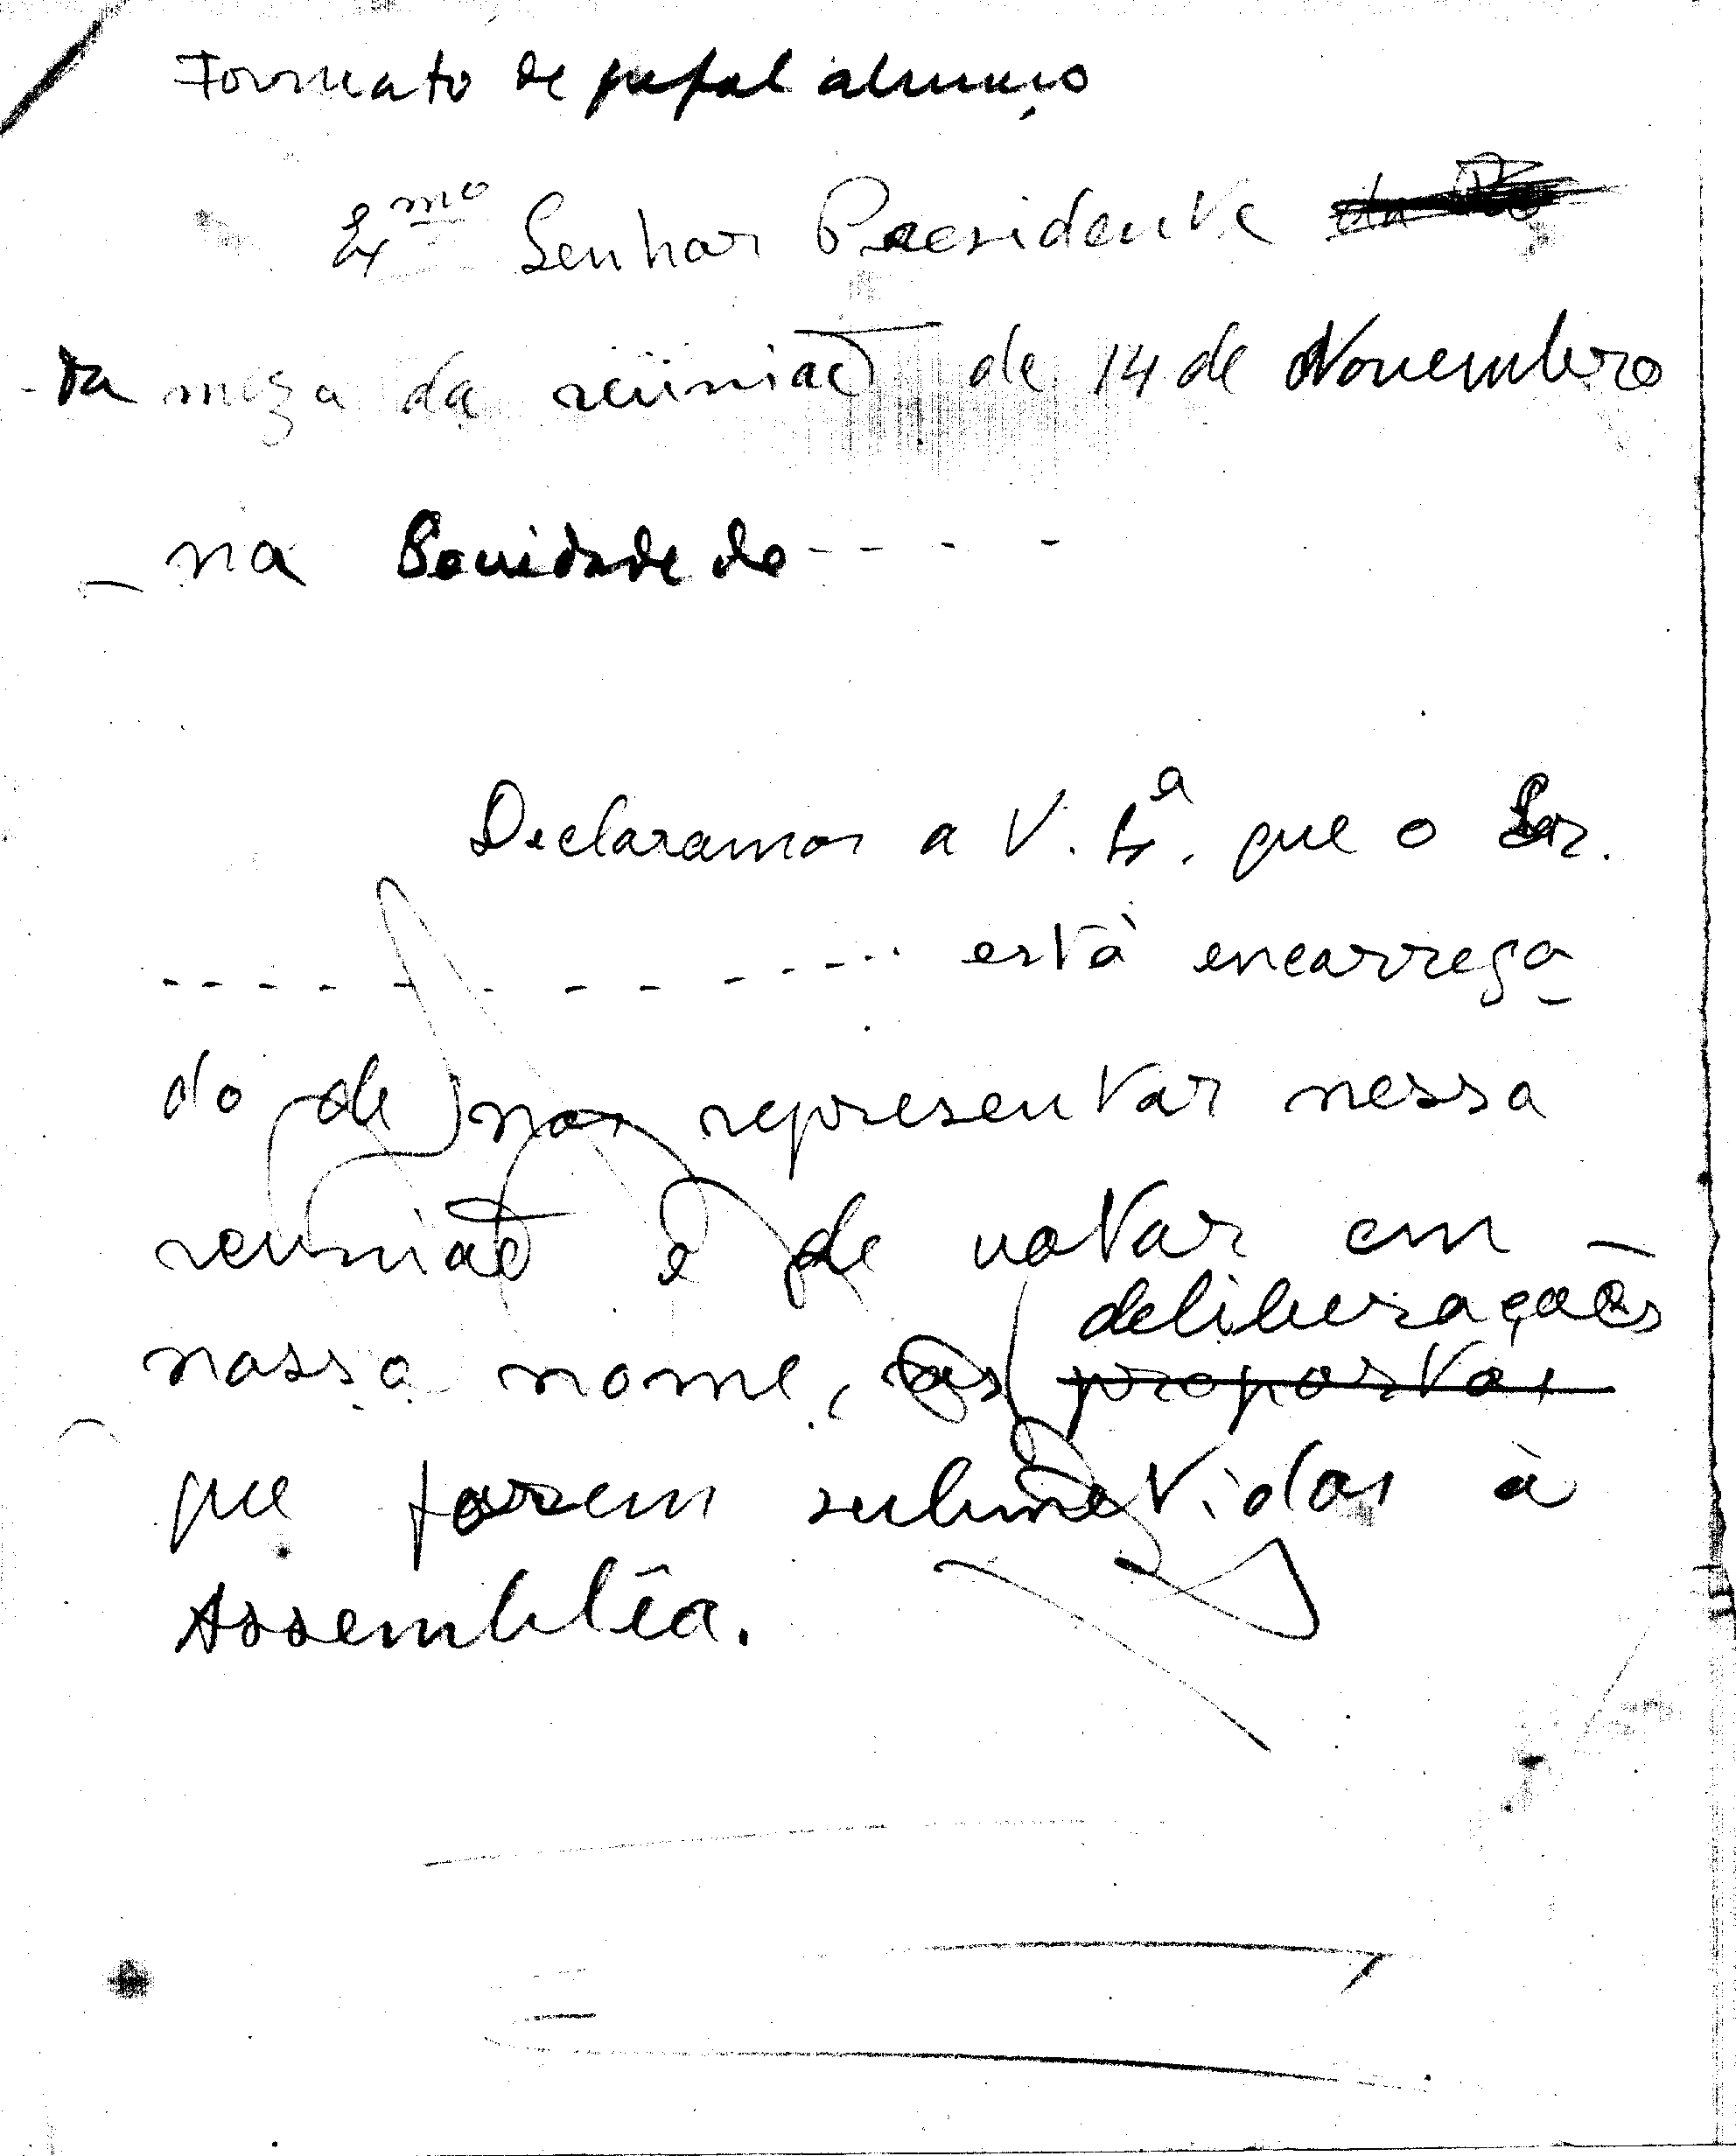 Formato de papel almaço
Exmo Senhor Presidente da
da meza da reünião de 14 de Novembro
na de - - - -
Declaramos a V. Exa. que o Snr.
- - - - - - - - - - - - está encarrega
do de nos representar nessa
reunião e de votar em
deliberações
nosso nome, as propostas
que forem submetidas à
Assemblêa.